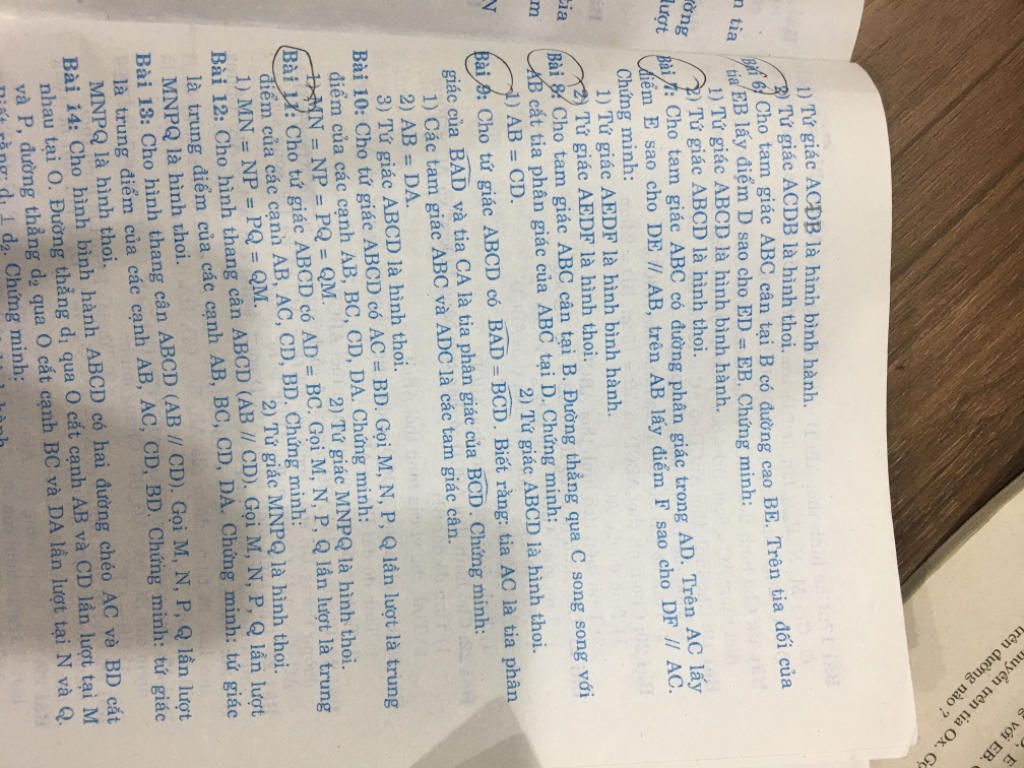 1) Tứ giác ACDB là hình bình hành.
2) Tứ giác ACDB là hình thoi.
Bài 6: Cho tam giác ABC cân tại B có đường cao BE. Trên tia đối của
tia EB lấy điểm D sao cho ED = EB. Chứng minh:
1) Tứ giác ABCD là hình bình hành.
2) Tứ giác ABCD là hình thoi.
Bài 7: Cho tam giác ABC có đường phân giác trong AD. Trên AC lấy
điểm E sao cho DE // AB, trên AB lấy điểm F sao cho DF // AC.
Chứng minh:
1) Tứ giác AEDF là hình bình hành.
2) Tứ giác AEDF là hình thoi.
Bài 8: Cho tam giác ABC cân tại B. Đường thẳng qua C song song với
AB cắt tia phân giác của ABC tại D. Chứng minh:
1) AB = CD. 2) Tứ giác ABCD là hình thoi.
Bài 9: Cho tứ giác ABCD có BAD = BCD. Biết rằng: tia AC là tia phân
giác của BAD và tia CA là tia phân giác của BCD. Chứng minh:
1) Các tam giác ABC và ADC là các tam giác cân.
2) AB = DA.
3) Tứ giác ABCD là hình thoi.
Bài 10: Cho tứ giác ABCD có AC = BD. Gọi M, N, P, Q lần lượt là trung
điểm của các cạnh AB, BC, CD, DA. Chứng minh:
1) MN = NP = PQ = QM. 2) Tứ giác MNPQ là hình thoi.
Bài 11: Cho tứ giác ABCD có AD = BC. Gọi M, N, P, Q lần lượt là trung
điểm của các cạnh AB, AC, CD, BD. Chứng minh:
1) MN = NP = PQ = QM. 2) Tứ giác MNPQ là hình thoi.
Bài 12: Cho hình thang cân ABCD (AB // CD). Gọi M, N, P, Q lần lượt
là trung điểm của các cạnh AB, BC, CD, DA. Chứng minh: tứ giác
MNPQ là hình thoi.
Bài 13: Cho hình thang cân ABCD (AB // CD). Gọi M, N, P, Q lần lượt
là trung điểm của các cạnh AB, AC, CD, BD. Chứng minh: tứ giác
MNPQ là hình thoi.
Bài 14: Cho hình bình hành ABCD có hai đường chéo AC và BD cắt
nhau tại O. Đường thẳng d₁ qua O cắt cạnh AB và CD lần lượt tại M
và P, đường thẳng d₂ qua O cắt cạnh BC và DA lần lượt tại N và Q.
Biết rằng: d₁ ⊥ d₂. Chứng minh:
n tia
ường
lượt
tia
am
N
trên tia Ox. Gọ
trên đường nào ?
với EB.